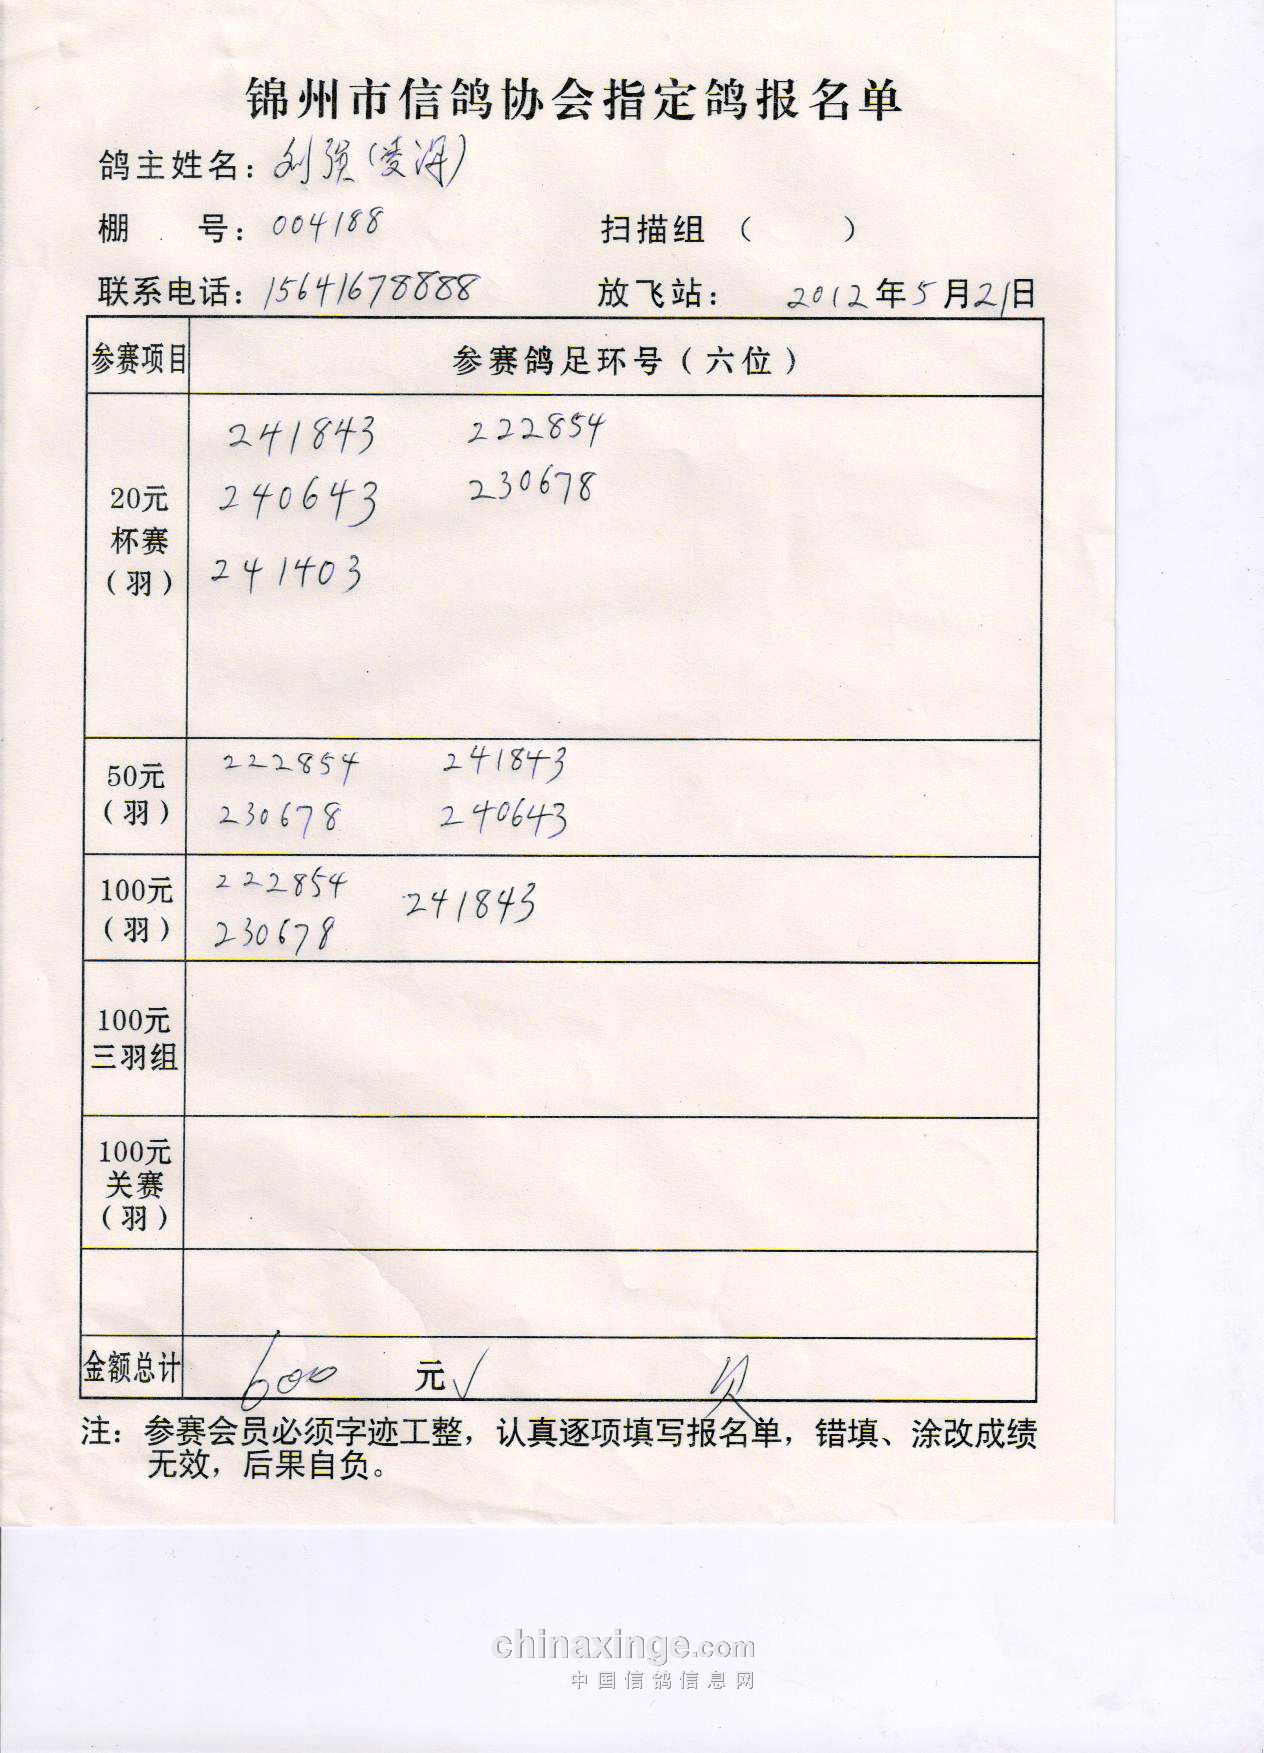 锦州市信鸽协会指定鸽报名单
鸽主姓名：刘强（凌海）
棚 号：004188 扫描组（ ）
联系电话：15641678888 放飞站： 2012年5月21日
参赛项目 参赛鸽足环号（六位）
20元
杯赛
（羽）
241843 222854
240643 230678
241403
50元
（羽）
222854 241843
230678 240643
100元
（羽）
222854 241843
230678
100元
三羽组
100元
关赛
（羽）
金额总计 600 元√ 欠
注：参赛会员必须字迹工整，认真逐项填写报名单，错填、涂改成绩
无效，后果自负。
chinaxinge.com
中国信鸽信息网